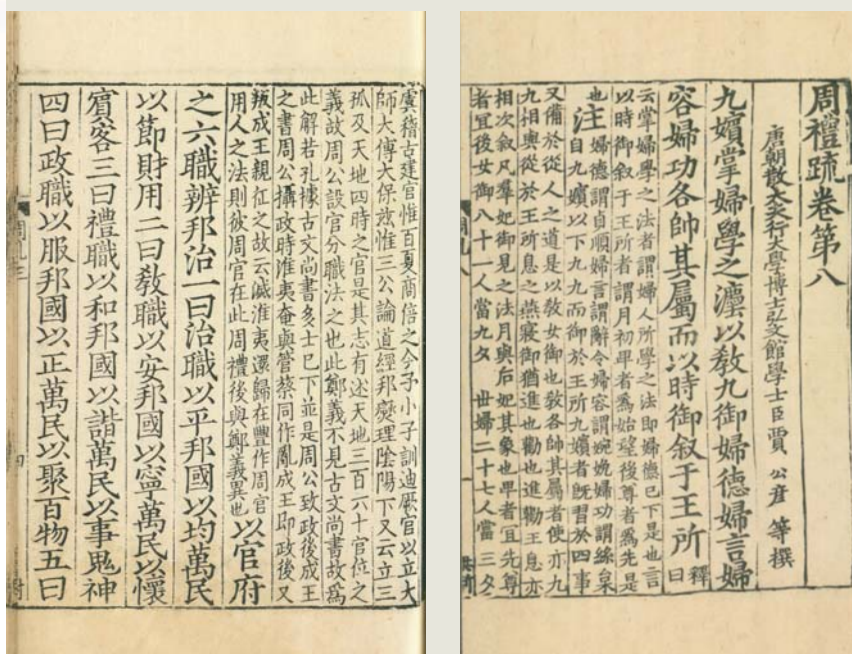 周禮疏卷第八
唐朝散大夫行大學博士弘文館學士臣賈 公彥 等撰
九嬪掌婦學之灋以教九御婦德婦言婦
容婦功各帥其屬而以時御叙于王所 釋曰
云掌婦學之法者謂婦人所學之法即婦德已下是也言
以時御叙于王所者謂月初卑者為始望後尊者為先是
也 注 婦德謂貞順婦言謂辭令婦容謂婉娩婦功謂絲枲
自九嬪以下九九而御於王所九嬪者既習於四事
又備於從人之道是以教女御也教各帥其屬者使亦九
九相與從於王所息之燕寢御猶進也勸也進勸王息亦
相次叙凡羣妃御見之法月與后妃其象也卑者宜先尊
者宜後女御八十一人當九夕 世婦二十七人當三夕
周礼八
虞稽古建官惟百夏商倍之今予小子訓迪厥官以立大
師大傅大保茲惟三公論道經邦燮理陰陽下又云立三
孤及天地四時之官是其志有述天地三百六十官位之
義故周公設官分職法之也此鄭義不見古文尚書故為
此解若孔據古文尚書多士已下並是周公致政後成王
之書周公攝政時淮夷奄與管蔡同作亂成王即政後又
叛成王親征之故云滅淮夷還歸在豐作周官
用人之法則彼周官在此周禮後與鄭義異也 以官府
之六職辨邦治一曰治職以平邦國以均萬民
以節財用二曰教職以安邦國以寧萬民以懷
賓客三曰禮職以和邦國以諧萬民以事鬼神
四曰政職以服邦國以正萬民以聚百物五曰
周礼三